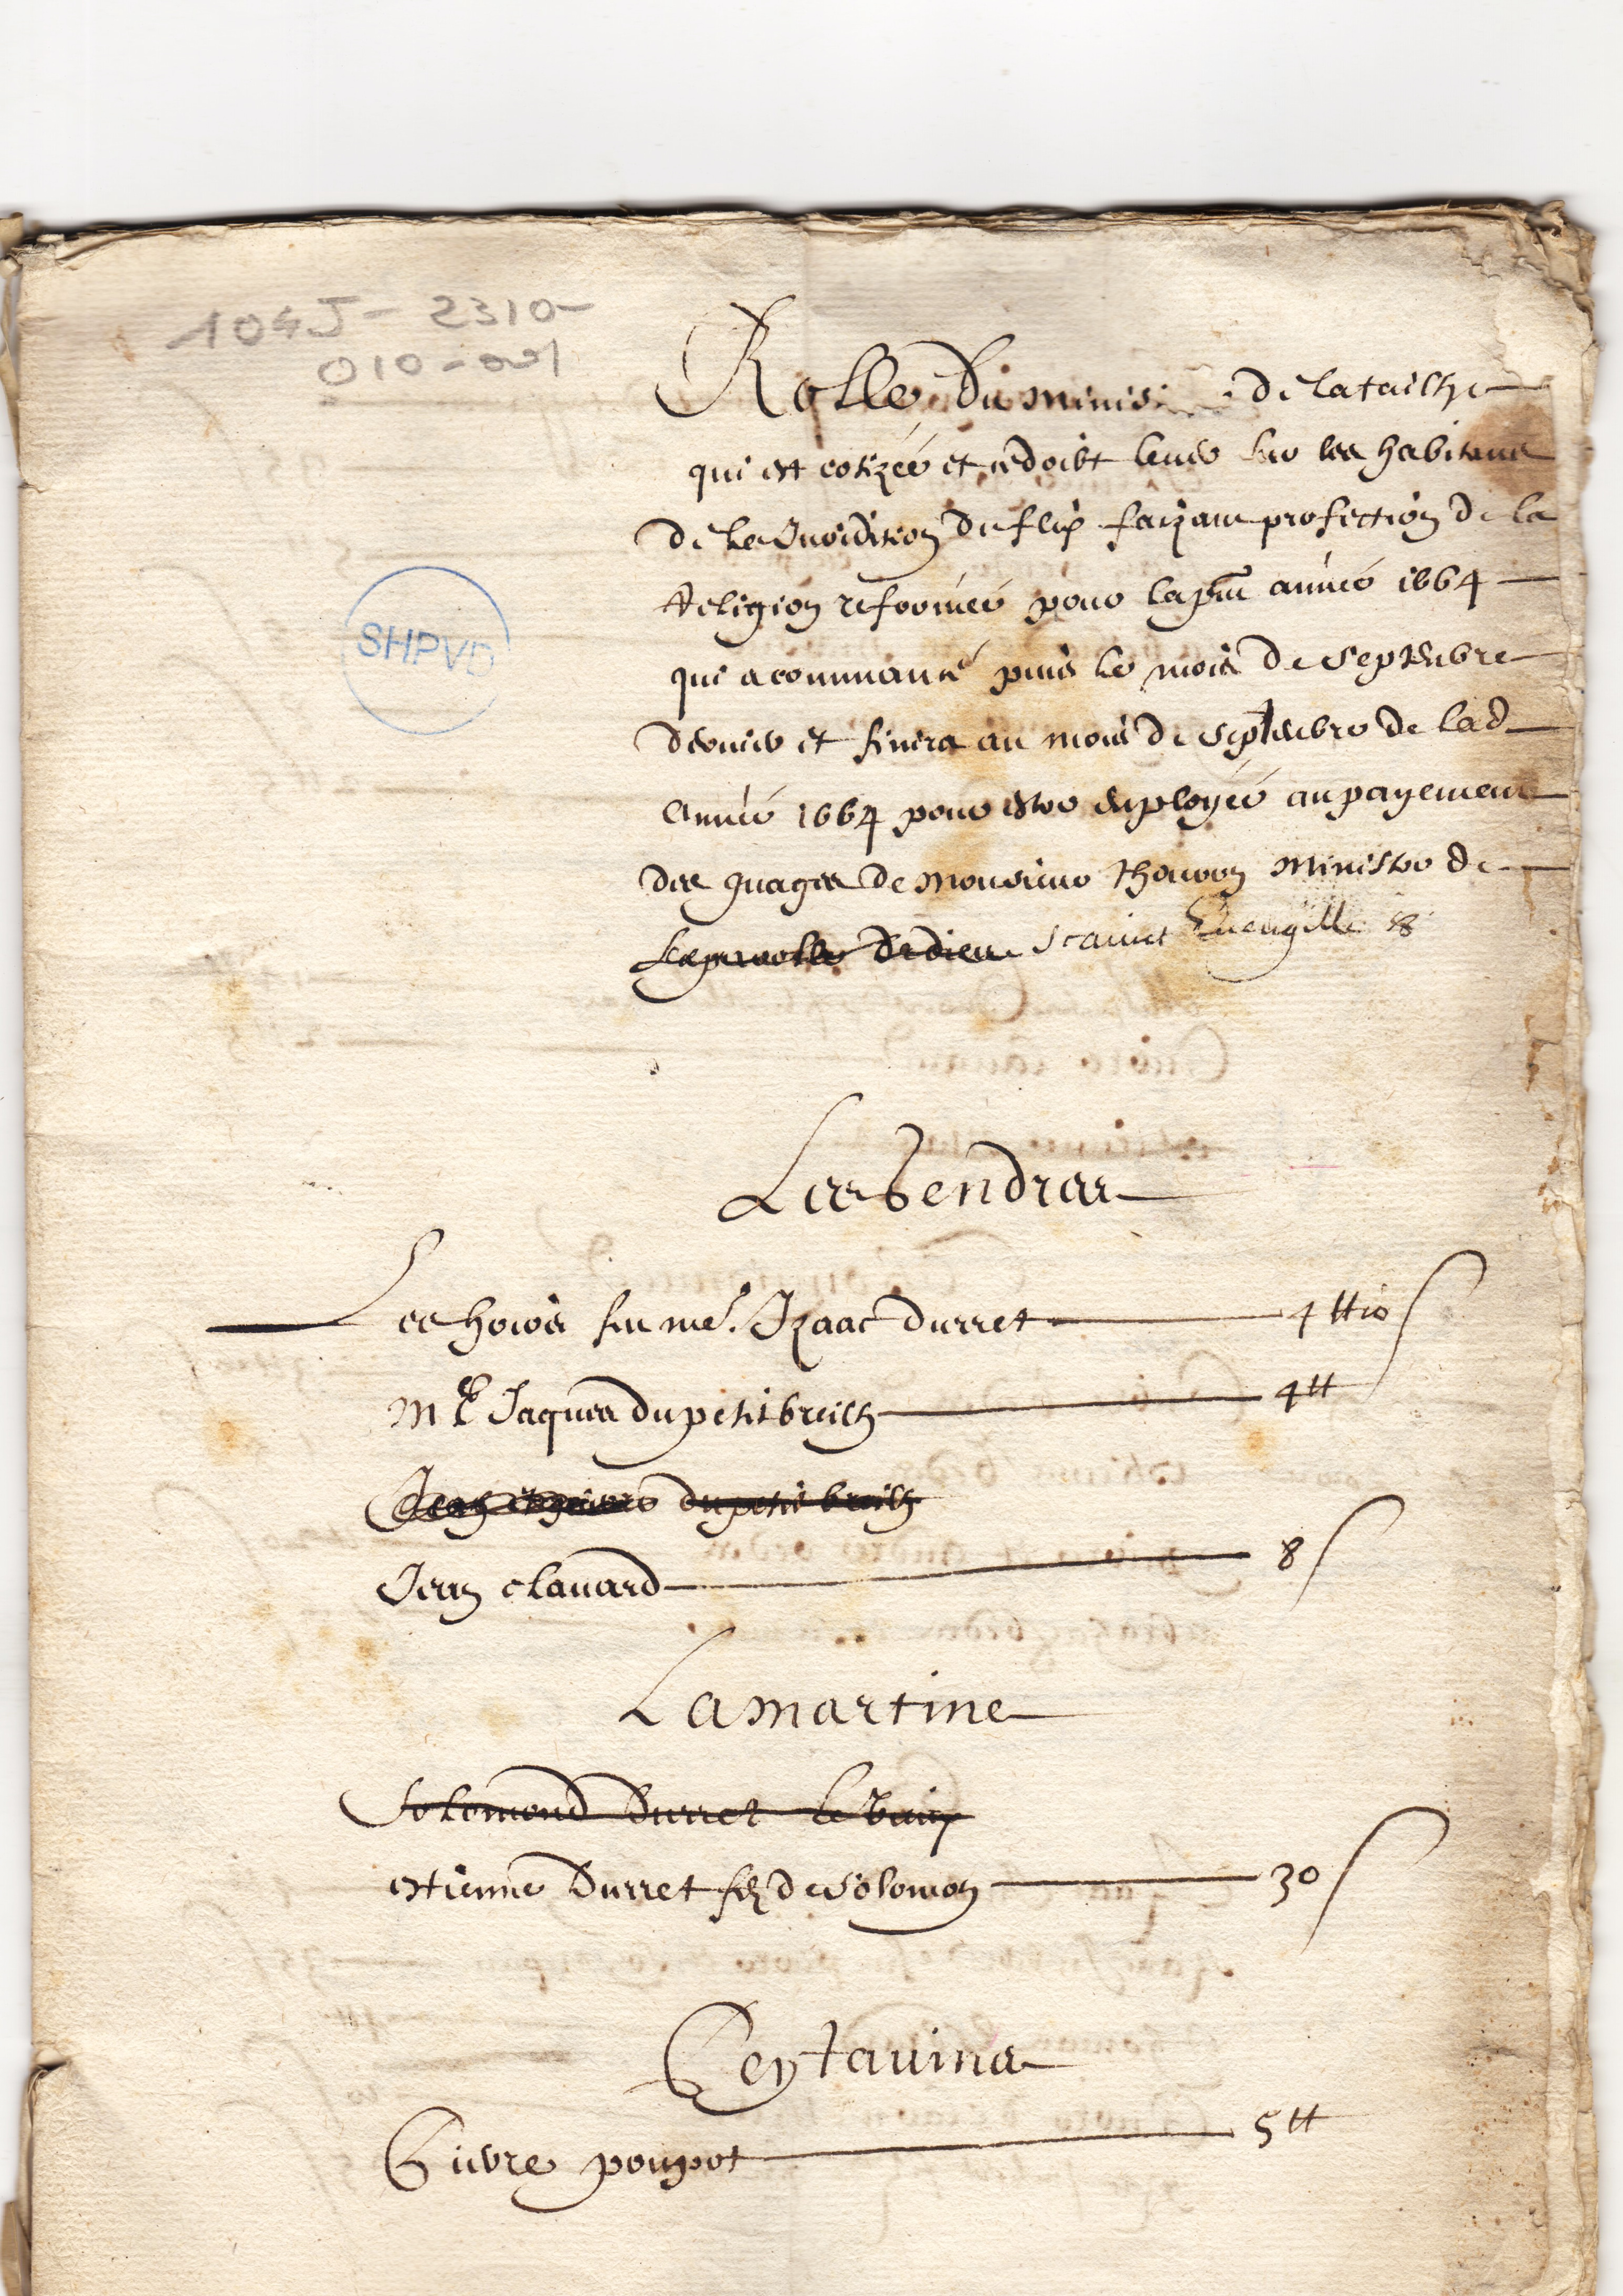 104J - 2310-
010-001
SHPVD
Rolle du minis de la tailhe
qui est cotizée et ce doibt lever sur les habitans
de la Juridition de flix faizant profection de la
Religion reformée pour la pnt année 1664
qui a commancé puis le mois de Septembre
dernier et finira au mois de Septembre de lad
année 1664 pour estre employée au payement
des guages de Monsieur Ministre de
de dieu Evengille
Les Vendras
Les hoirs feu me. Izaac Durret 4 tt 10 s
Me Jaques du petit breilh 4 tt
du petit breilh
Jean clavard 8 s
Lamartine
Solomond Durret le vieux
estienne Durret filz de Solomon 30 s
Pierre poupot 5 tt